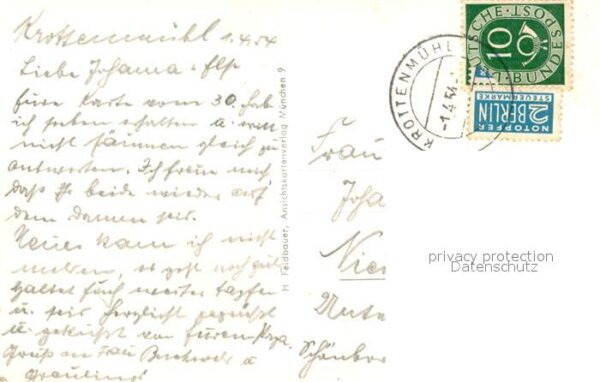 Krottenmühl 1.4.54
Liebe Johanna u. Else
Eure Karte vom 30. hab
ich soeben erhalten u. will
nicht säumen gleich zu
antworten. Ich freue mich
daß Ihr beide wieder auf
dem Damm seid.
Neues kann ich nicht
melden, es geht noch gut
haltet Euch weiter tapfer
u. seid herzlichst gegrüßt
u. geküßt von Eurem Papa.
Gruß an Frau u
H. Feldbauer, Ansichtskartenverlag München 9
KROTTENMÜHL
-1.4.54
DEUTSCHE BUNDESPOST
10
NOTOPFER
2 BERLIN
STEUERMARKE
Frau
Joha
Nie
Schönbor
privacy protection
Datenschutz